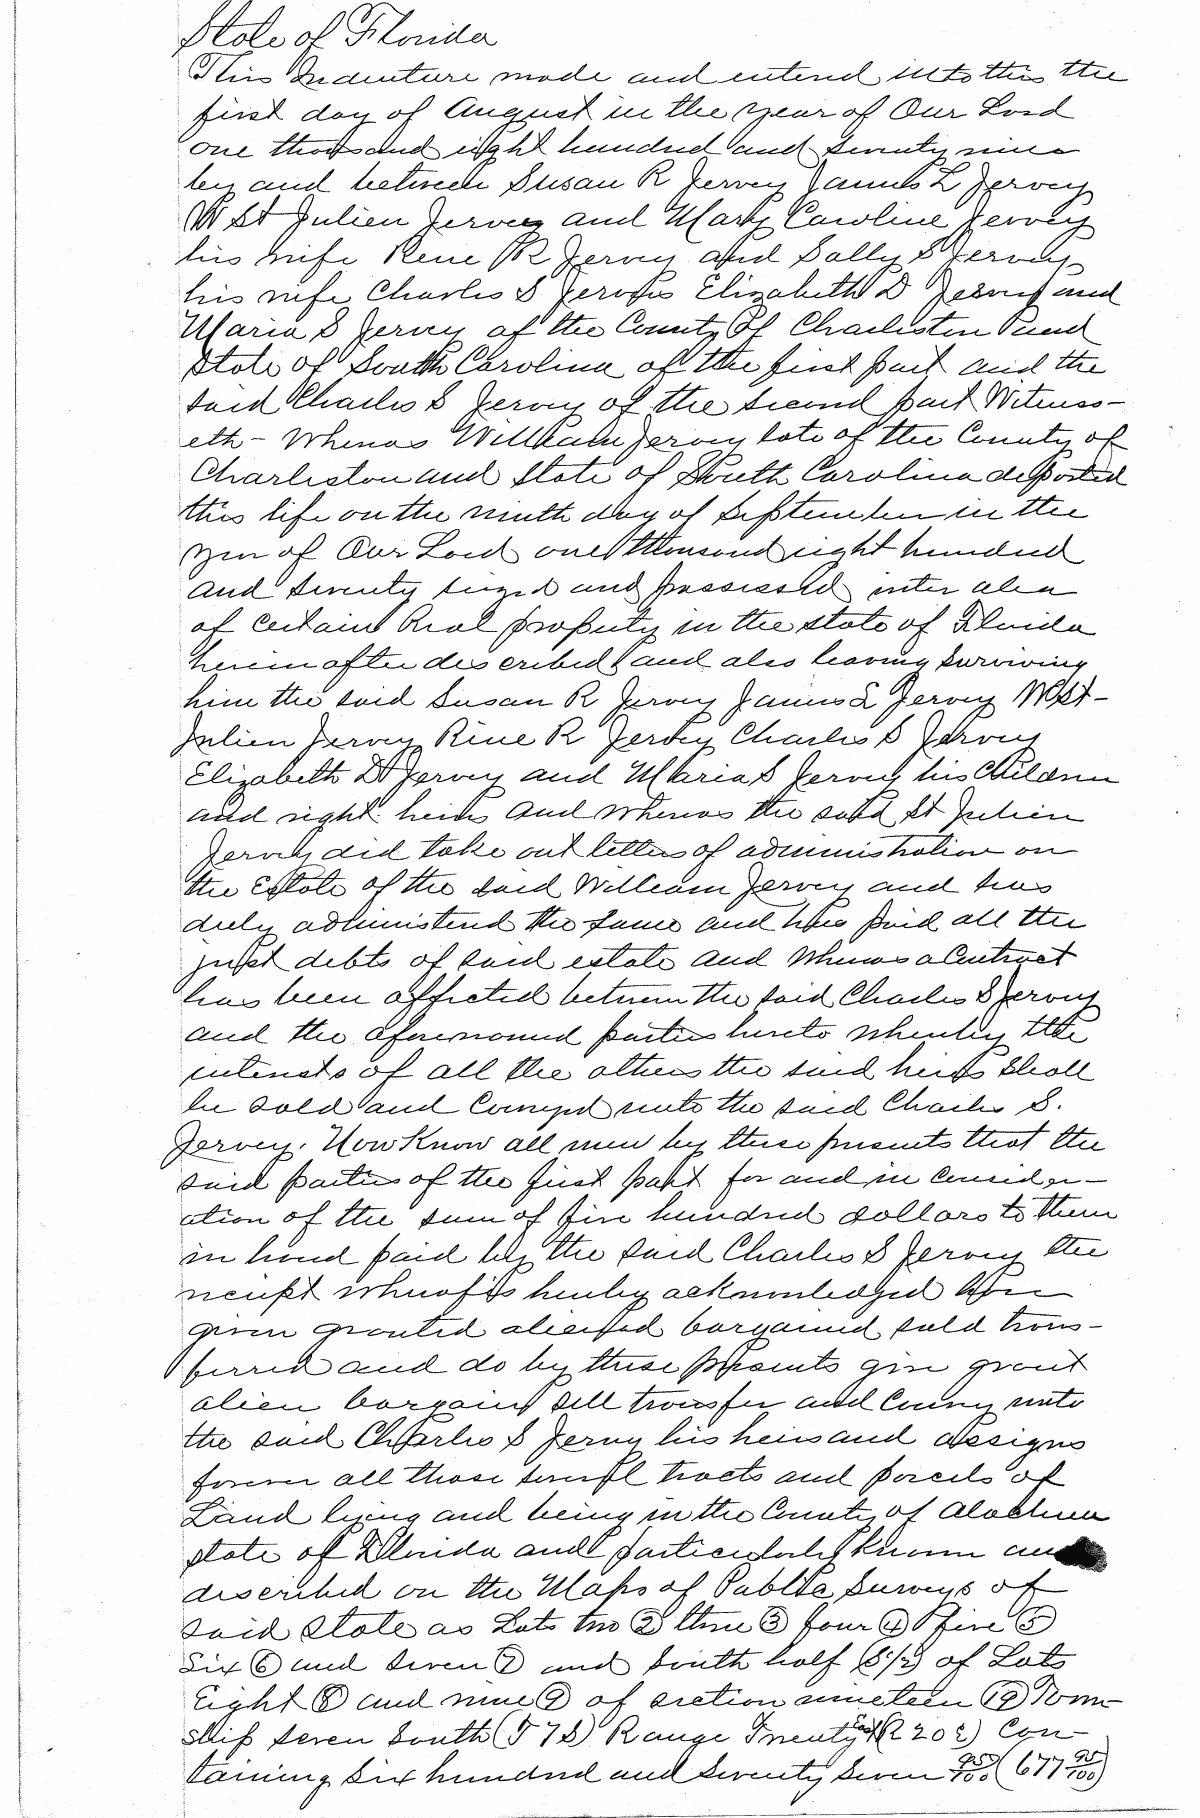 State of Florida
This Indenture made and entered into this the
first day of August in the year of Our Lord
one thousand eight hundred and seventy nine
by and between Susan R Jervey James L Jervey
W St Julien Jervey and Mary Caroline Jervey
his wife Rene R Jervey and Sally S Jervey
his wife Charles S Jervey Elizabeth D Jervey and
Maria S Jervey of the County of Charleston and
State of South Carolina of the first part and the
said Charles S Jervey of the second part Witness-
eth - Whereas William Jervey late of the County of
Charleston and State of South Carolina departed
this life on the ninth day of September in the
year of Our Lord one thousand eight hundred
and seventy seized and possessed inter alea
of certain Real property in the state of Florida
herein after described and also leaving surviving
him the said Susan R Jervey James L Jervey W St-
Julien Jervey Rene R Jervey Charles S Jervey
Elizabeth D Jervey and Maria S Jervey his Children
and right heirs and whereas the said St Julien
Jervey did take out letters of administration on
the Estate of the said William Jervey and has
duly administered the same and has paid all the
just debts of said estate and whereas a Contract
has been affected between the said Charles S Jervey
and the aforenamed parties hereto whereby the
interests of all the others the said heirs shall
be sold and Conveyed unto the said Charles S.
Jervey. Now Know all men by these presents that the
said parties of the first part for and in consider-
ation of the sum of five hundred dollars to them
in hand paid by the said Charles S Jervey the
receipt whereof is hereby acknowledged have
given granted aliened bargained sold trans-
ferred and do by these presents give grant
alien bargain sell transfer and Convey unto
the said Charles S Jervey his heirs and assigns
forever all those several tracts and parcels of
Land lying and being in the County of Alachua
state of Florida and particularly known and
described on the Maps of Public Surveys of
said State as Lots two 2 three 3 four 4 five 5
six 6 and seven 7 and south half (S 1/2) of Lots
Eight 8 and nine 9 of section nineteen 19 Town-
ship seven South (T 7 S) Range Twenty East (R 20 E) Con-
taining six hundred and seventy seven 95/100 (677 95/100)